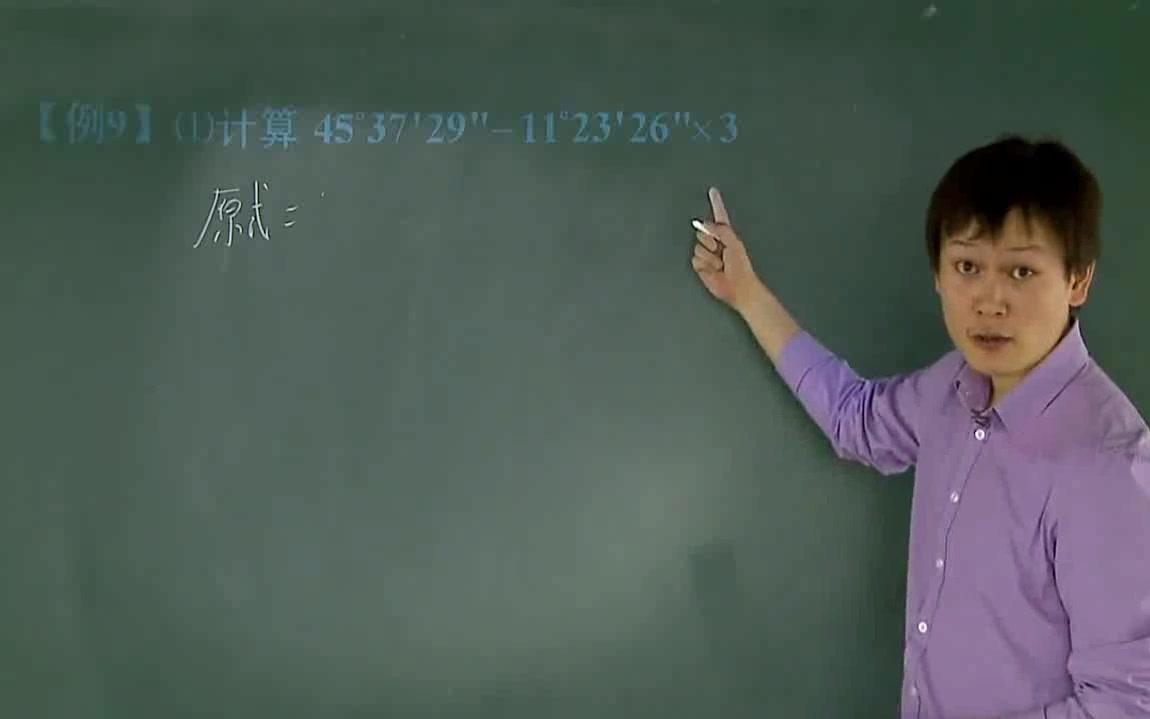 【例9】⑴计算 45°37'29"−11°23'26"×3
原式=